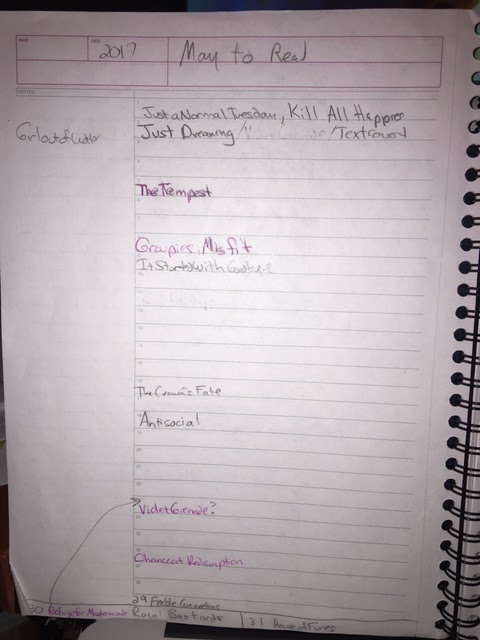 DATE 2017 May to Read
NOTES
Just a Normal Tuesday, Kill All Happies
Girl out of Water Just Dreaming /Textrovert
The Tempest
Groupies, Misfit
It Started With Goodbye
The Crown's Fate
Antisocial
Violet Grenade?
Chance at Redemption
29 Feeble
30 Refuge for Masterminds Royal Bastards 31 House of Furies